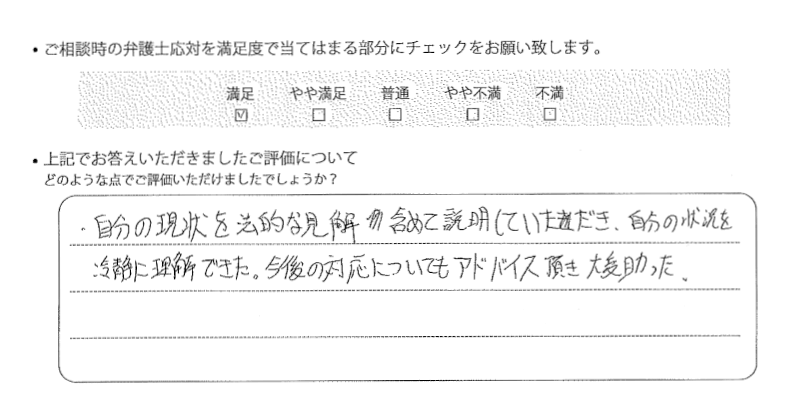 ・ご相談時の弁護士応対を満足度で当てはまる部分にチェックをお願い致します。
満足 やや満足 普通 やや不満 不満
・上記でお答えいただきましたご評価について
どのような点でご評価いただけましたでしょうか?
・自分の現状を法的な見解も含めて説明していただき、自分の状況を
冷静に理解できた。今後の対応についてもアドバイス頂き大変助った。